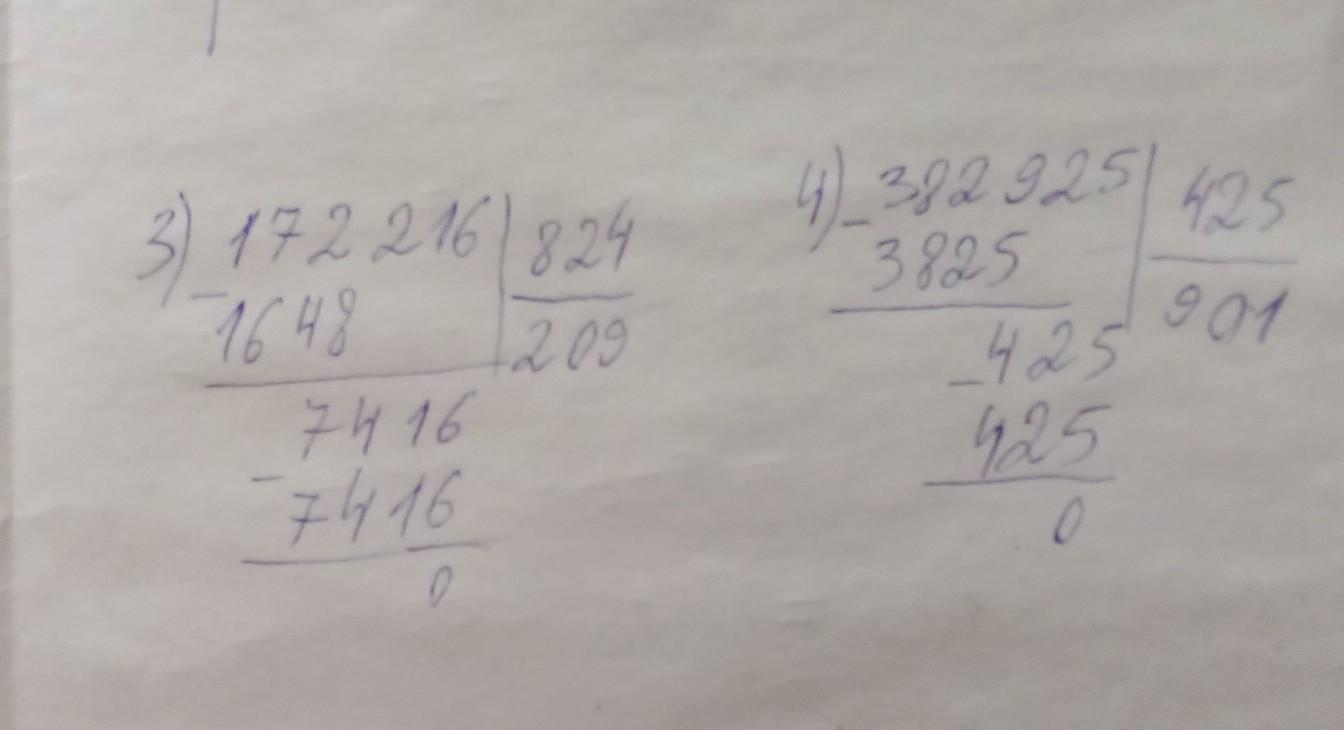 3) 172 216 | 824
- 1648 | 209
7416
- 7416
0
4) - 382 925 | 425
3825 | 901
- 425
425
0